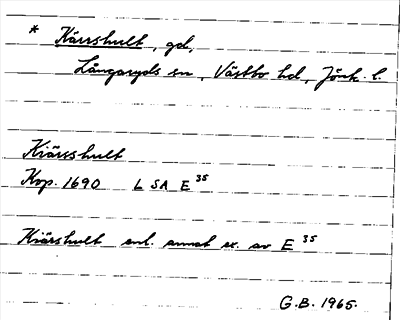 * Kärrshult, gd,
Långaryds sn, Västbo hd, Jönk. l.
Kiärshult
Kop. 1690 LSA E 35
Kiärshult enl. annat ex. av E 35
G.B. 1965.